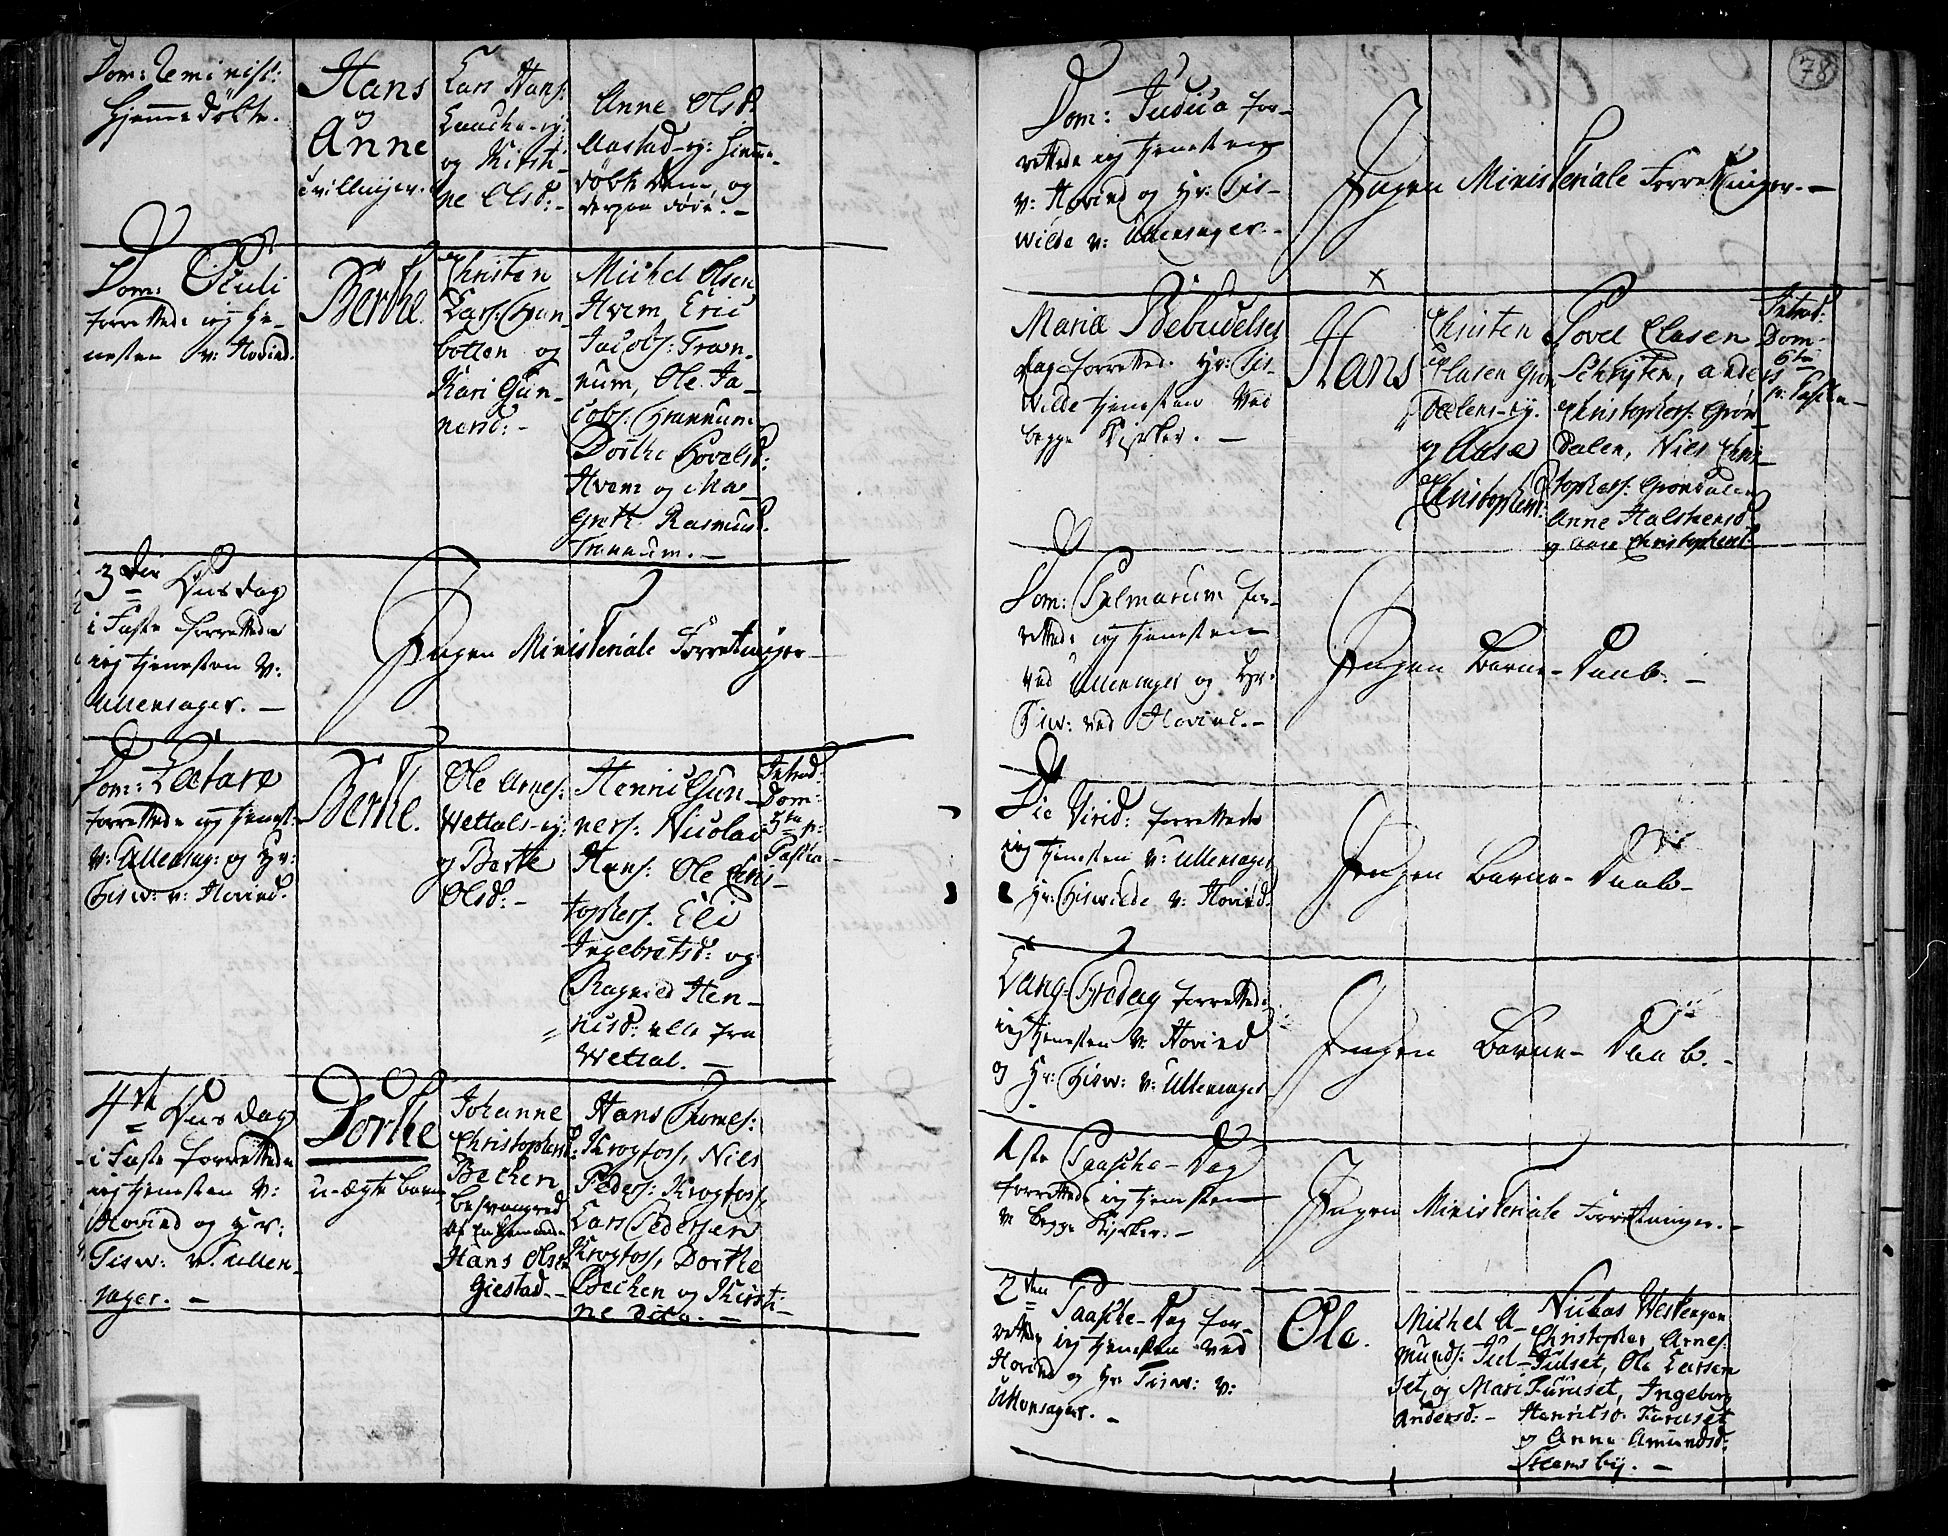 Dom: Reminisc:
hjemmedöbte.
Hans
og
Anne
tvillinger.
Lars Hans:
og Kirsti-
ne Olsd: -
Anne Olsd:
döbte dem, og
derpaa döde. -
Dom: Oculi
forrettede ieg tie-
nesten v: Hovind.
Berthe.
Christen
Lars:
botten og
Kari Gun-
nersd: -
Michel Olsen
Hvem, Eric
Jacobs: Tran-
num, Ole Ja-
cobs: Trannum
Dorthe Povelsd:
Hvem og Ma-
Greth Rasmusd.
Trannum. -
3die Onsdag
i Faste forrettede
ieg tjenesten v:
Ullensager. -
Ingen Ministeriale Forretninger -
Dom: Lætare
forrettede ieg tjenest:
v: Ullensag: og Hr:
Tisw: v: Hovind.
Berthe.
Ole Arnes:
Wettals-ej:
og Berthe
Olsd: -
Henric Gun-
ners: Nicolai
Hans: Ole Chris-
tophers. Eli
Ingebretsd: og
Ragnild Hen-
ricsd: alle fra
Wettal. -
Introd:
Dom:
5te p:
Pascha -
4de Onsdag
i Faste forrettede
ieg tjenesten v:
Hovind og Hr:
Tisw: v: Ullen-
sager. -
Dorthe
u-ægte barn
Johanne
Christophersd:
Becken
besvangred
af
Hans Olsen
Giestad. -
Hans Thomes:
Krogfoss, Niels
Peders: Krogfoss,
Lars Pedersen
Krogfoss, Dorthe
Becken og Kirsti-
ne dito. -
78
Dom: Judica for-
rettede ieg tjenesten
v: Hovind og Hr: Tis-
wilde v: Ullensager. -
Ingen Ministeriale Forretninger. -
Mariæ Bebudelses
dag forrettede Hr: Tis-
wilde tjenesten ved
begge Kirker. -
x
Hans
Christen
Clasen Grön-
dalens-ej.
og Aase
Christophersd:
Povel Clasen
Schriften, Ande
Christophers: Grön-
dalen, Niels Chris-
tophers: Gröndalen
Anne Halstensd:
og Aase Christophersd:
Introd:
Dom-
6te
p: Pascha -
Dom: Palmarum for-
rettede ieg tjenesten
ved Ullensager og Hr:
Tisw: ved Hovind. -
Ingen Barne-Daab. -
Die Virid: forrettede
ieg tjenesten v: Ullensager
Hr: Tiswilde v: Hovind.
Ingen Barne-Daab -
Lang-Fredag forrettede
ieg tjenesten v: Hovind
og Hr: Tisw: v: Ullensager
Ingen Barne-Daab. -
1ste Paasche-Dag
forrettede ieg tjenesten
v: begge Kirker. -
Ingen Ministeriale Forretninger. -
2den Paasche-Dag for-
rettede ieg tjenesten ved
Hovind og Hr Tisw: v:
Ullensager. -
Ole.
Michel A-
munds: Jul-
set, og Mari
Andersd: -
Niclas Westengen
Christopher Arnes:
Julset, Ole Larsen
Furuset, Ingeborg
Henricsd: Furuset
og Anne Amundsd:
Steensby. -